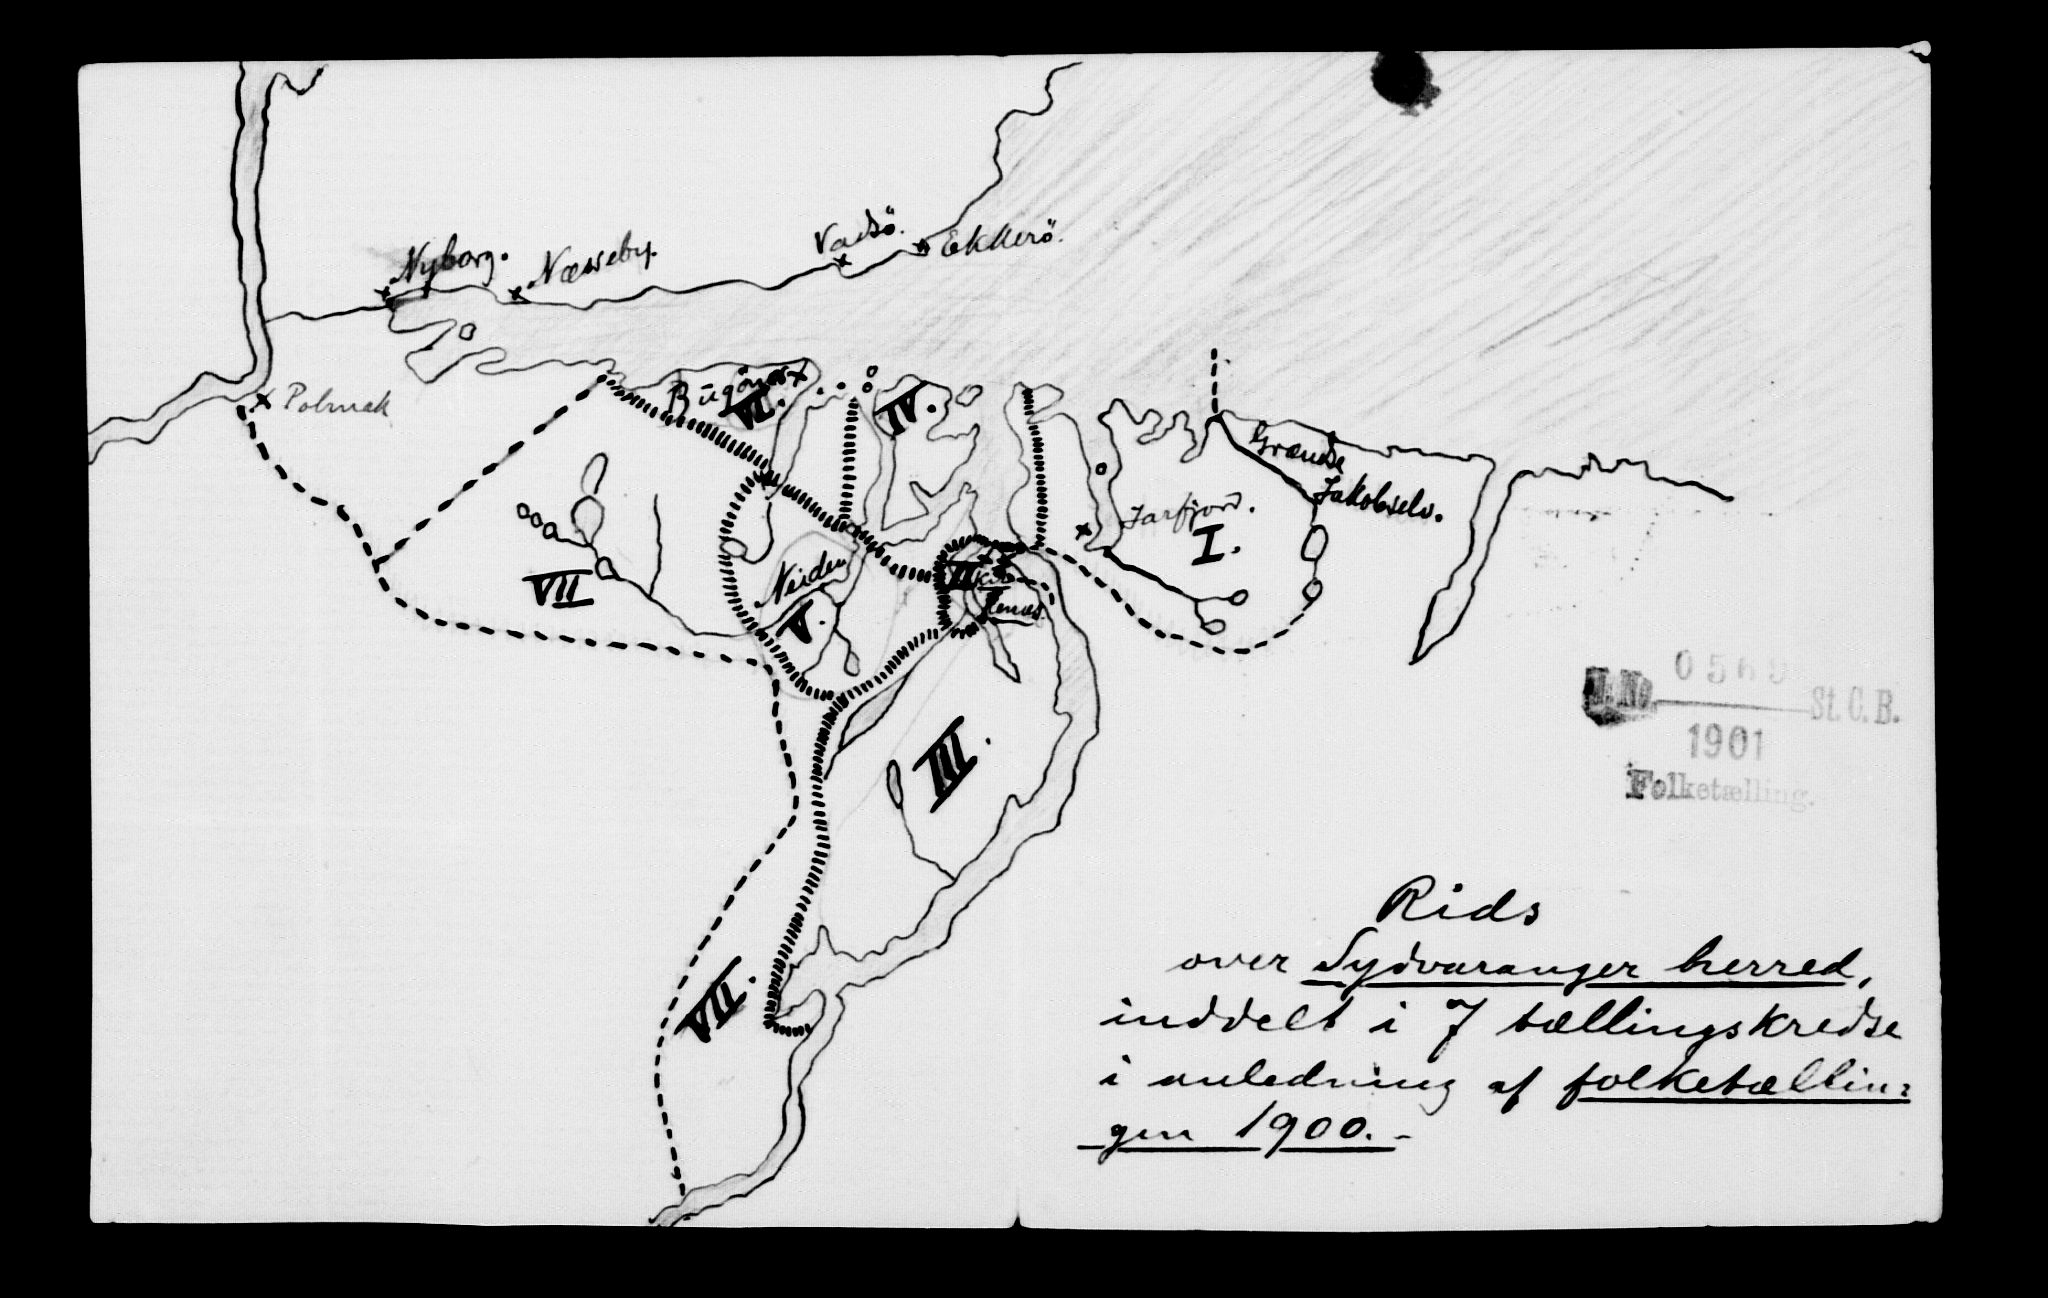 Nyborg.
Næsseby.
Vadsö.
Ekkerö.
Polmak
Bugönes
VI.
IV.
Grændse
Jakobselv.
Jarfjord.
I.
VII
Neiden
V.
II
Kir
kenes.
III.
VII.
J. No. 0569 St. C. B.
1901
Folketælling.
Rids
over Sydvaranger herred,
inddelt i 7 tællingskredse
i anledning af folketællin-
gen 1900.-